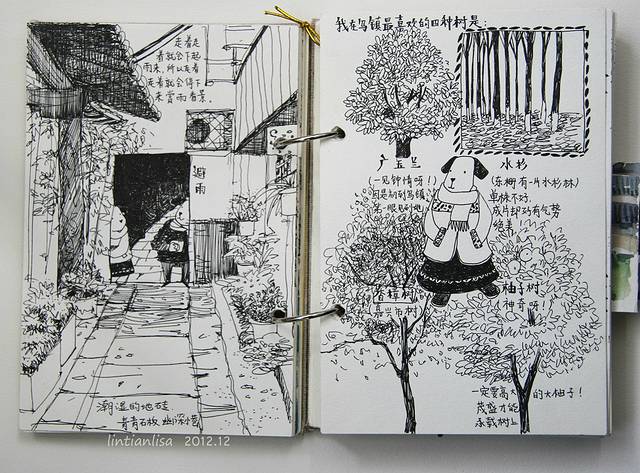 走着走
着就会下起
雨来,所以走着
走着就会停下
来赏雨看景。
避
雨
潮湿的地砖
青青石板 幽深小巷
lintianlisa 2012.12
我在乌镇最喜欢的四种树是:
广玉兰
(一见钟情呀!)
因是初到乌镇
第一眼见到她
水杉
(东栅有一片水杉林)
单株不巧
成片却巧有气势
绝美
香樟树
嘉兴市树
柚子树
神奇呀!
一定要高大的大柚子!
茂盛才能
承载树上